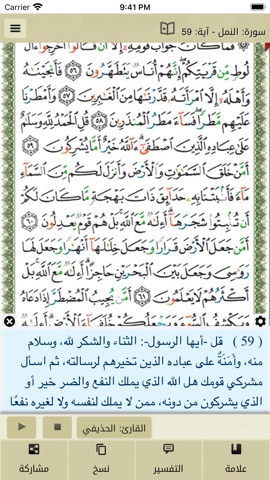 Carrier 9:41 PM
سورة: النمل - آية: 59
فَمَا كَانَ جَوَابَ قَوْمِهِ إِلَّا أَن قَالُوا أَخْرِجُوا آلَ
لُوطٍ مِّن قَرْيَتِكُمْ إِنَّهُمْ أُنَاسٌ يَتَطَهَّرُونَ ٥٦ فَأَنجَيْنَاهُ
وَأَهْلَهُ إِلَّا امْرَأَتَهُ قَدَّرْنَاهَا مِنَ الْغَابِرِينَ ٥٧ وَأَمْطَرْنَا
عَلَيْهِم مَّطَرًا فَسَاءَ مَطَرُ الْمُنذَرِينَ ٥٨ قُلِ الْحَمْدُ لِلَّهِ وَسَلَامٌ
عَلَىٰ عِبَادِهِ الَّذِينَ اصْطَفَىٰ آللَّهُ خَيْرٌ أَمَّا يُشْرِكُونَ ٥٩
أَمَّنْ خَلَقَ السَّمَاوَاتِ وَالْأَرْضَ وَأَنزَلَ لَكُم مِّنَ السَّمَاءِ
مَاءً فَأَنبَتْنَا بِهِ حَدَائِقَ ذَاتَ بَهْجَةٍ مَّا كَانَ لَكُمْ
أَن تُنبِتُوا شَجَرَهَا أَإِلَٰهٌ مَّعَ اللَّهِ بَلْ هُمْ قَوْمٌ يَعْدِلُونَ ٦٠
أَمَّن جَعَلَ الْأَرْضَ قَرَارًا وَجَعَلَ خِلَالَهَا أَنْهَارًا وَجَعَلَ لَهَا
رَوَاسِيَ وَجَعَلَ بَيْنَ الْبَحْرَيْنِ حَاجِزًا أَإِلَٰهٌ مَّعَ اللَّهِ بَلْ
أَكْثَرُهُمْ لَا يَعْلَمُونَ ٦١ أَمَّن يُجِيبُ الْمُضْطَرَّ إِذَا دَعَاهُ
( 59 ) قل -أيها الرسول-: الثناء والشكر لله، وسلام
منه، وأَمَنَةٌ على عباده الذين تخيرهم لرسالته، ثم اسأل
مشركي قومك هل الله الذي يملك النفع والضر خير أو
الذي يشركون من دونه، ممن لا يملك لنفسه ولا لغيره نفعًا
القارئ: الحذيفي
علامة التفسير نسخ مشاركة